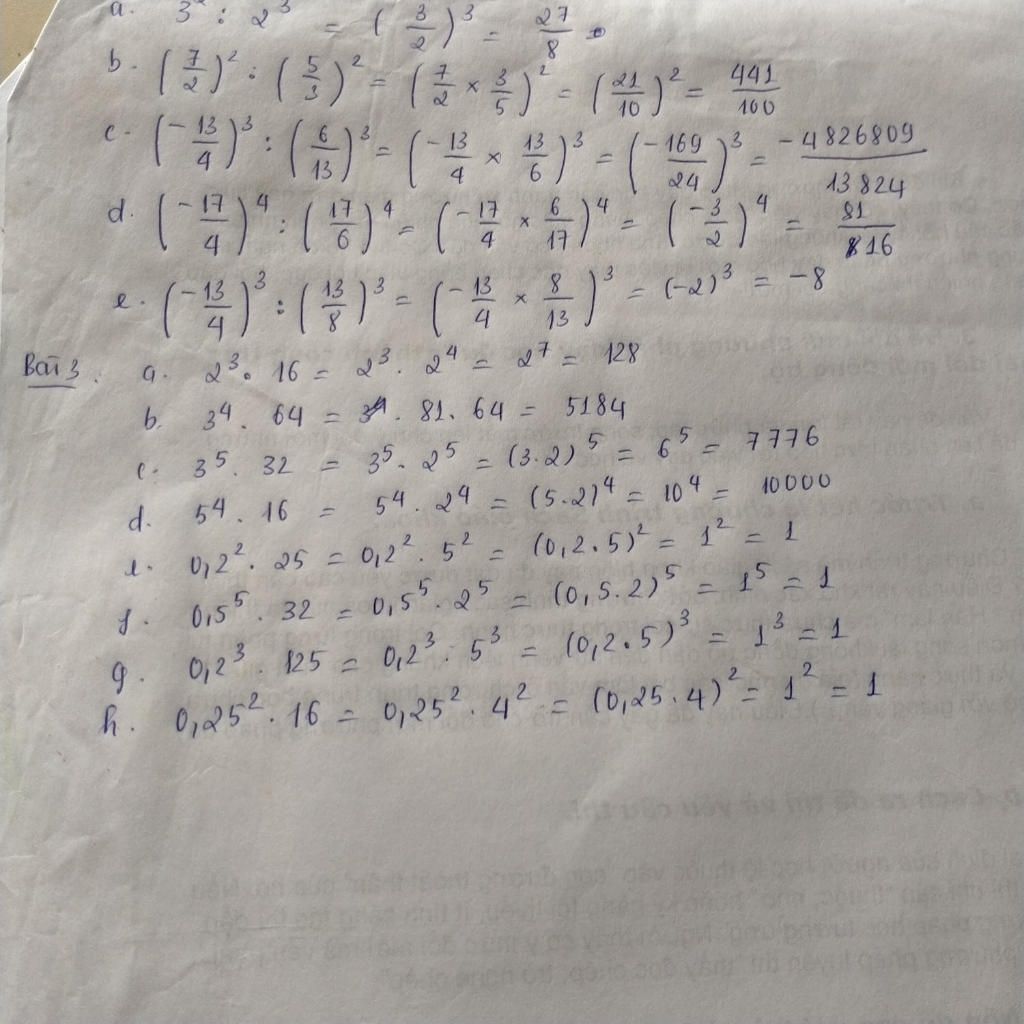 a. 3³ : 2³ = (3/2)³ = 27/8
b. (7/2)² : (5/3)² = (7/2 × 3/5)² = (21/10)² = 441/100
c. (-13/4)³ : (6/13)³ = (-13/4 × 13/6)³ = (-169/24)³ = -4826809/13824
d. (-17/4)⁴ : (17/6)⁴ = (-17/4 × 6/17)⁴ = (-3/2)⁴ = 81/16
e. (-13/4)³ : (13/8)³ = (-13/4 × 8/13)³ = (-2)³ = -8
Bài 3: a. 2³. 16 = 2³. 2⁴ = 2⁷ = 128
b. 3⁴. 64 = 81. 64 = 5184
c. 3⁵. 32 = 3⁵. 2⁵ = (3.2)⁵ = 6⁵ = 7776
d. 5⁴. 16 = 5⁴. 2⁴ = (5.2)⁴ = 10⁴ = 10000
e. 0,2². 25 = 0,2². 5² = (0,2.5)² = 1² = 1
f. 0,5⁵. 32 = 0,5⁵. 2⁵ = (0,5.2)⁵ = 1⁵ = 1
g. 0,2³. 125 = 0,2³. 5³ = (0,2.5)³ = 1³ = 1
h. 0,25². 16 = 0,25². 4² = (0,25.4)² = 1² = 1